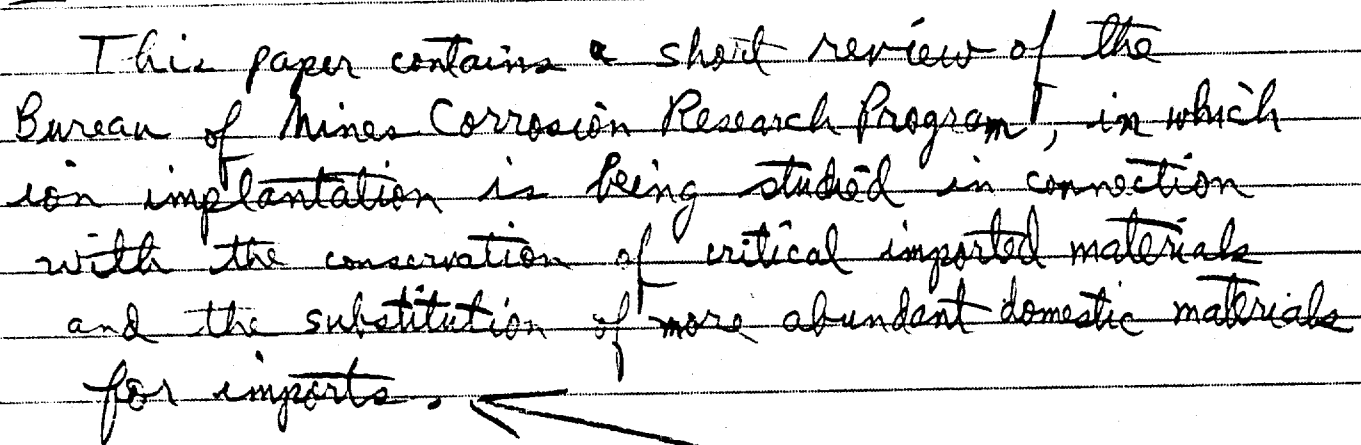 This paper contains a short review of the
Bureau of Mines Corrosion Research Program, in which
ion implantation is being studied in connection
with the conservation of critical imported materials
and the substitution of more abundant domestic materials
for imports.